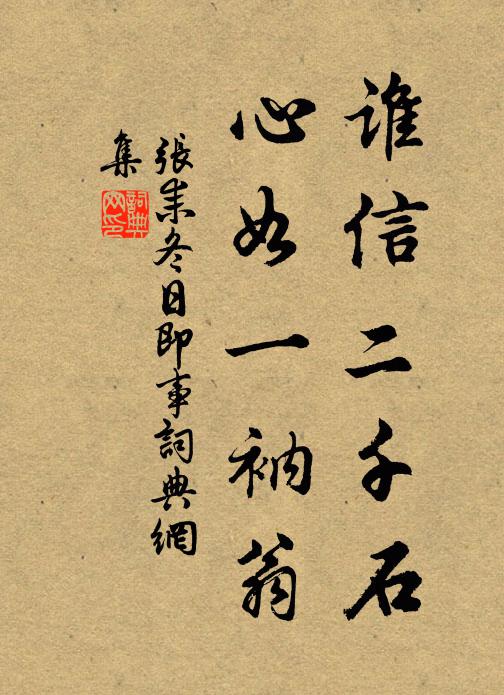 誰信二千石
心如一衲翁
張耒冬日即事詞典網
集
詞典网印